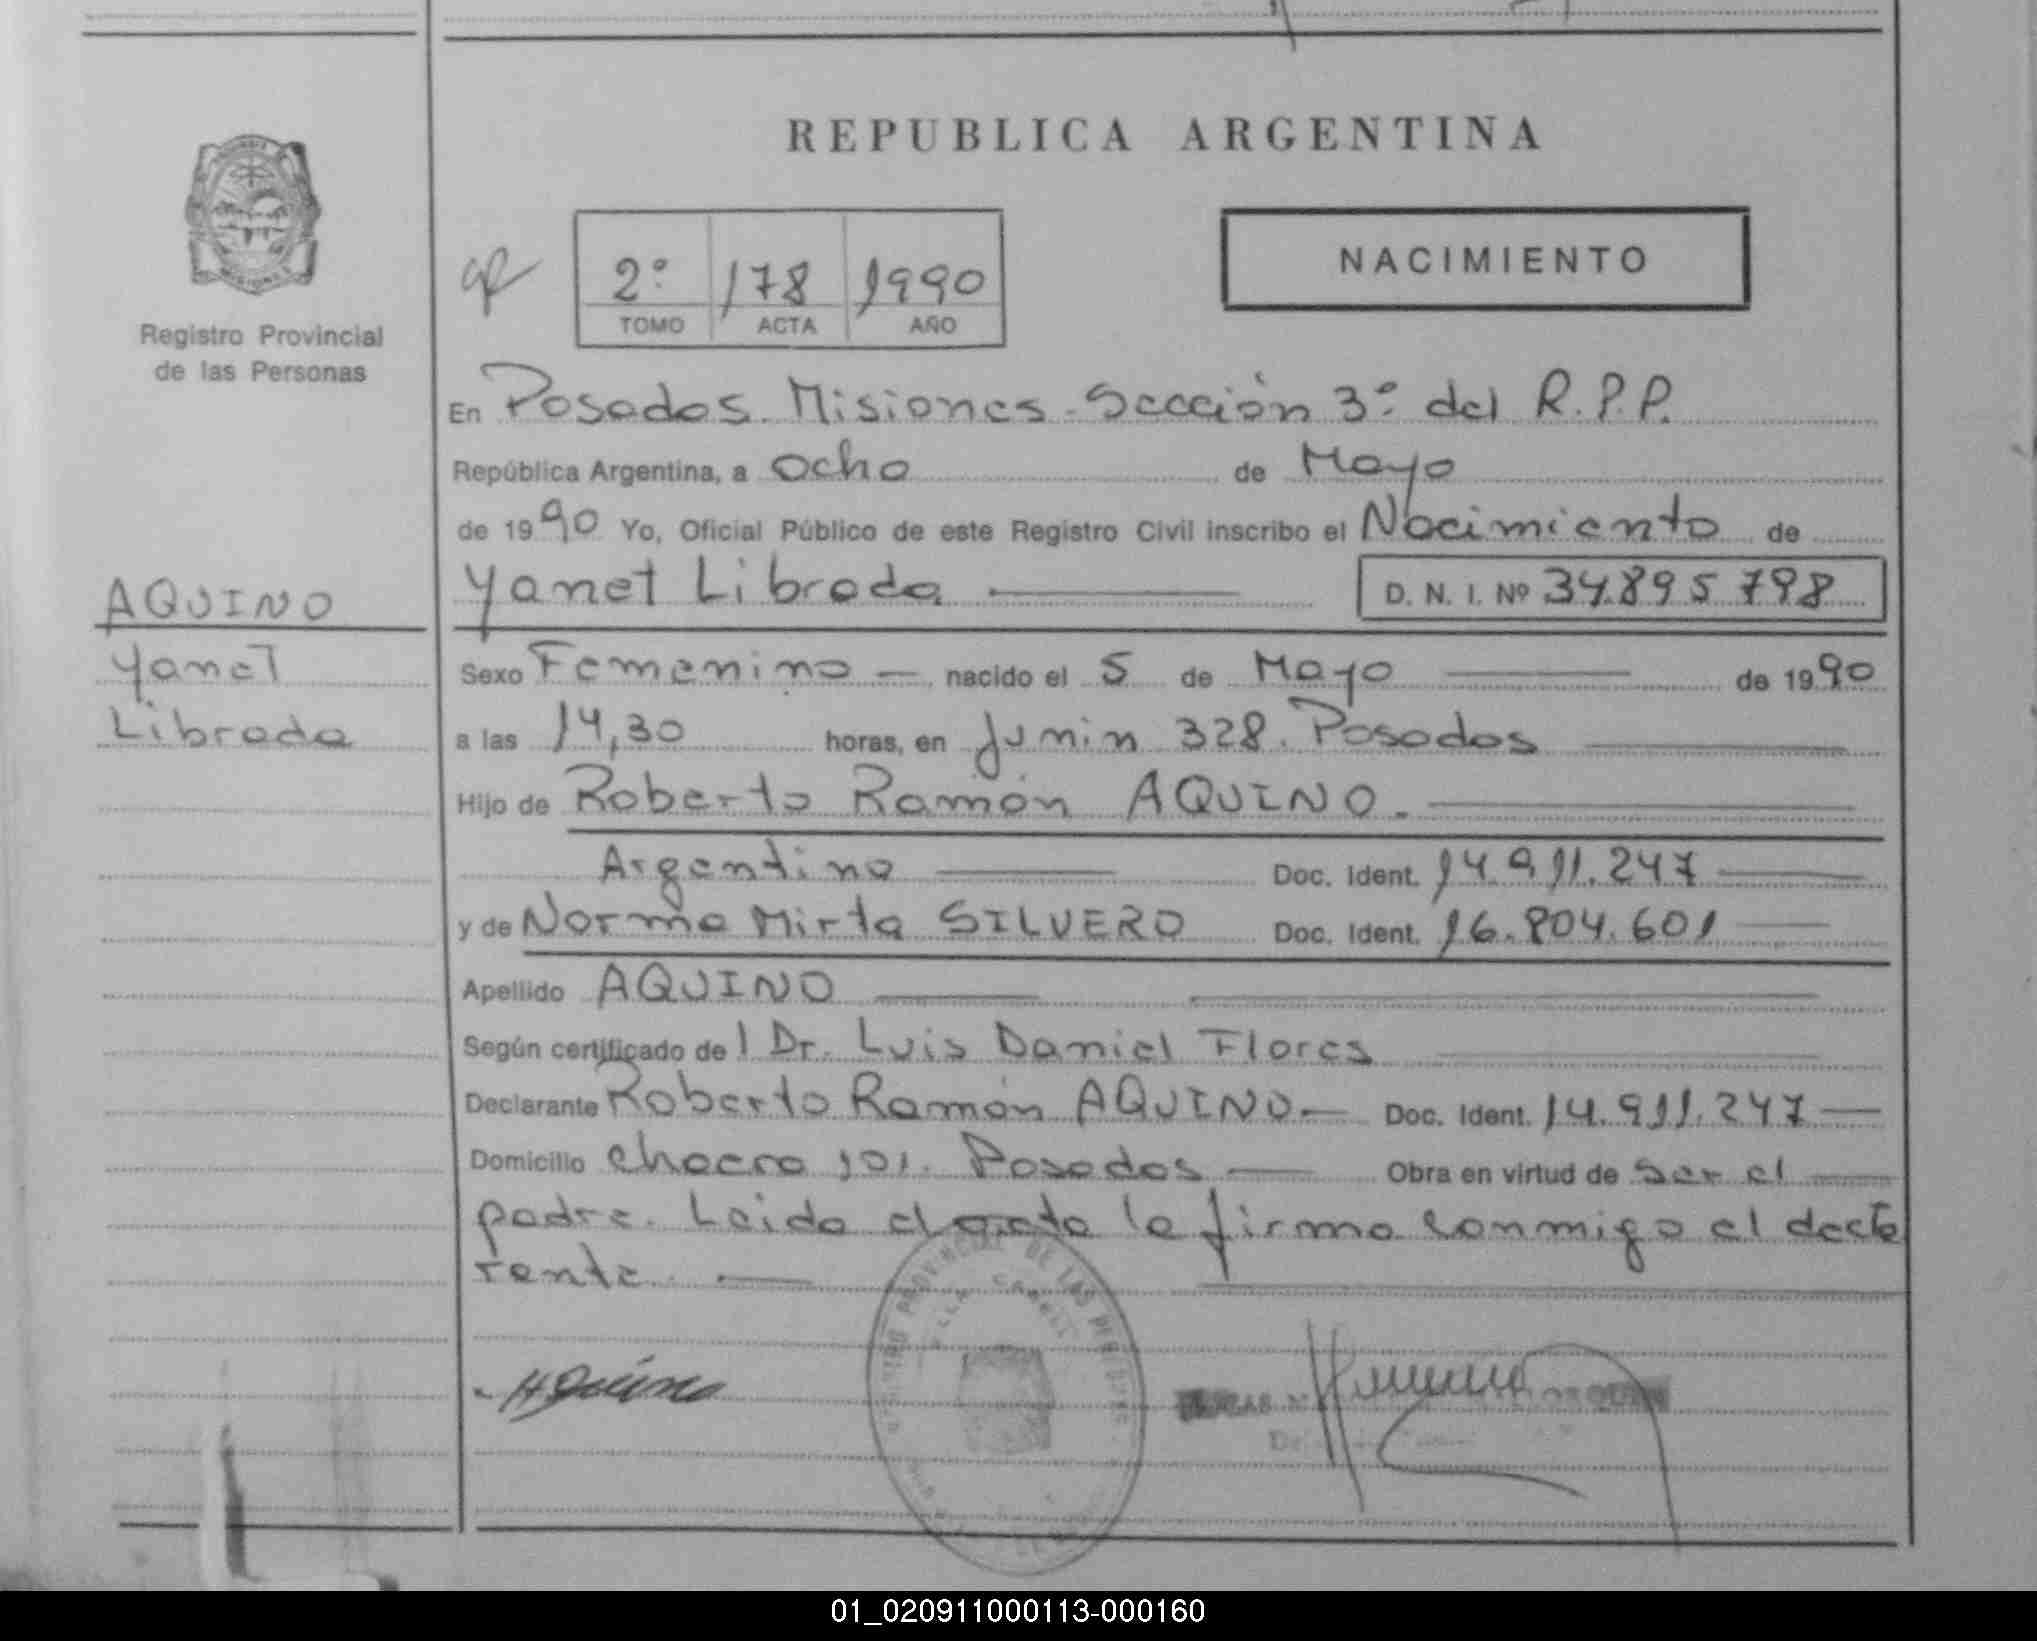 REPUBLICA ARGENTINA
Registro Provincial
de las Personas
2º 178 1990
TOMO ACTA AÑO
NACIMIENTO
En Posadas. Misiones. Sección 3º del R.P.P.
República Argentina, a ocho de Mayo
de 1990 Yo, Oficial Público de este Registro Civil inscribo el Nacimiento de
AQUINO
Yanet
Librada
Yanet Librada D. N. I. Nº 34.895.798
Sexo Femenino nacido el 5 de Mayo de 1990
a las 14,30 horas, en Junin 328. Posadas
Hijo de Roberto Ramón AQUINO.
Argentino Doc. Ident. 14.911.247
y de Norma Mirta SILVERO Doc. Ident. 16.804.601
Apellido AQUINO
Según certificado del Dr. Luis Daniel Flores
Declarante Roberto Ramón AQUINO. Doc. Ident. 14.911.247
Domicilio Chacra 101. Posadas Obra en virtud de ser el
padre. Leido el acta la firma conmigo el decla
rante.
REGISTRO PROVINCIAL DE LAS PERSONAS
VILLA CABELLO
Aquino
01_020911000113-000160